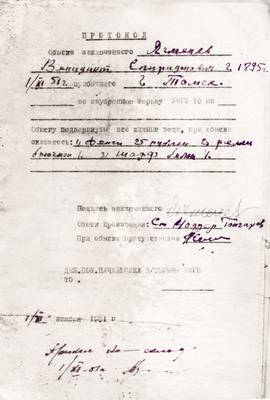 ПРОТОКОЛ
Обыска заключенного Ягмнцев
Венидикт Спиридонович г. 1895 г.
1/XI 51 г. прибывшего г. Томск.
во внутреннюю тюрьму УМГБ ТО из
Обыску подвергнуты все личные вещи, при обыске
оказалось: 1) деньги 25 рублей 2) ремен
брючной 1. 3) шарф 1.
Подпись заключенного
Обыск Производил: Ст. Надзир Гончаров
При обыске присутствовал
ДЕЖ.ПОМ.НАЧАЛЬНИКА В/ТЮРЬМЫ УМГБ
ТО .
1/XI ноября 1951 г
Принял на склад
1/XI-51г.